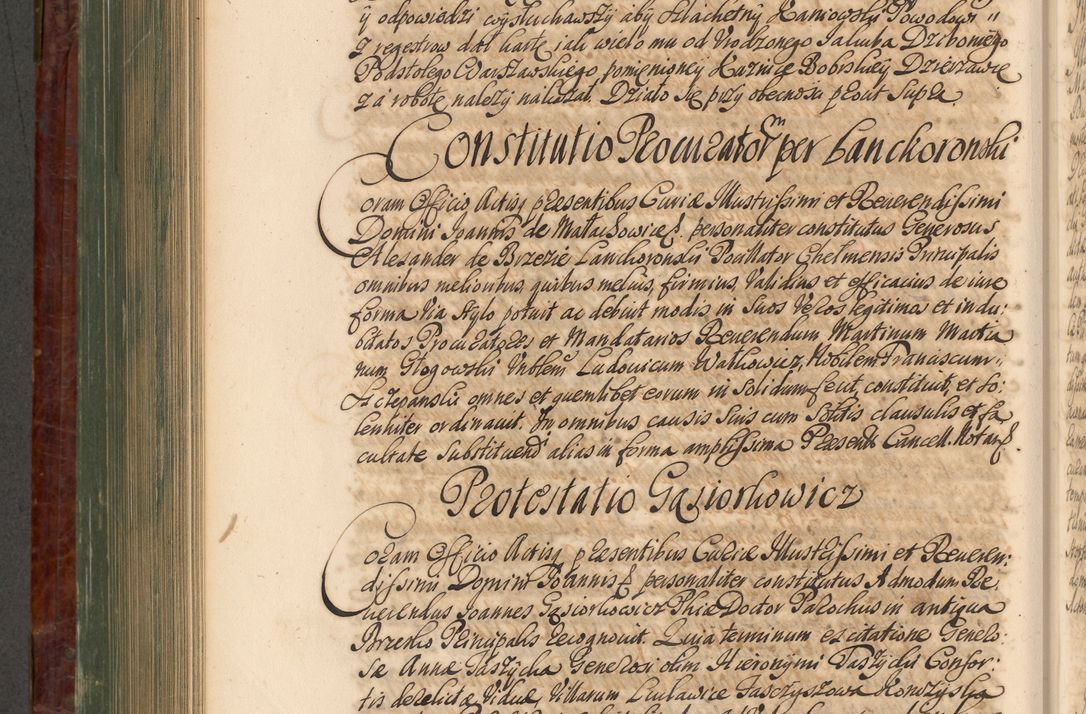 ÿ odpowiedzi wysłuchawszÿ abÿ Szlachetnÿ Kaniowski Powodowi
z regestrow dał kartę jak wiele mu od Urodzonego Jakuba Dziboniego
Podstolego Warszawskiego, pomienioney Kaznicę Bobrskiey Dzierzawie
za robotę nalezÿ nalezał. Działo się przÿ obecnosci prout Supra.
Constitutio Procuratorm per Lanckoronski
Coram Officio Actisq præsentibus Curiæ Illustrissimi et Reuerendissimi
Domini Joannis de Małachowice personaliter constitutus Generosus
Alexander de Brzezie Lanckoronski Pocillator Chelmensis Principalis
omnibus melioribus, quibus melius, firmius, Validius et efficacius de iure
forma Via Stylo potuit ac debuit modis in Suos Veros legitimos et indu:
bitatos Procuratores et Mandatarios Reuerendum Martinum Martia
num Głogowski Nobilem Ludouicum Wałkowicz, Nobilem Franciscum
Szczepanski omnes et quemlibet eorum in Solidum fecit, constituit, et So:
lenniter ordinauit. In omnibus causis Suis cum Solitis clausulis et fa
cultate Substituendi alias in forma amplissima Præsente Cancell. Notar.
Protestatio Gąsiorkowicz
Coram Officio Actisq præsentibus Curiæ Illustrissimi et Reueren:
dissimi Domini Joannis personaliter constitutus Admodum Re
uerendus Joannes Gąsiorkowicz Phiæ Doctor Parochus in antiqua
Brzesko Principalis recognouit. Quia terminum ex citatione Genero:
Sæ Annæ Taszÿcka Generosi olim Hieronÿmi Taszÿcki Confor:
tis derelictæ Viduæ, Villarum Lusławice Fasczÿszowa